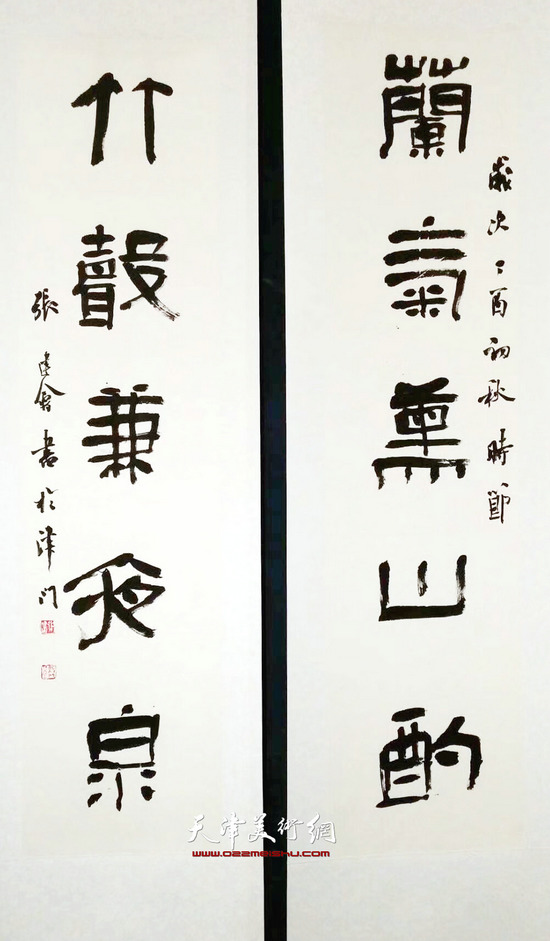 蘭氣熏山酌
歲次丁酉初秋時節
竹聲兼夜泉
張建會書於津門
天津美術網
www.022meishu.com